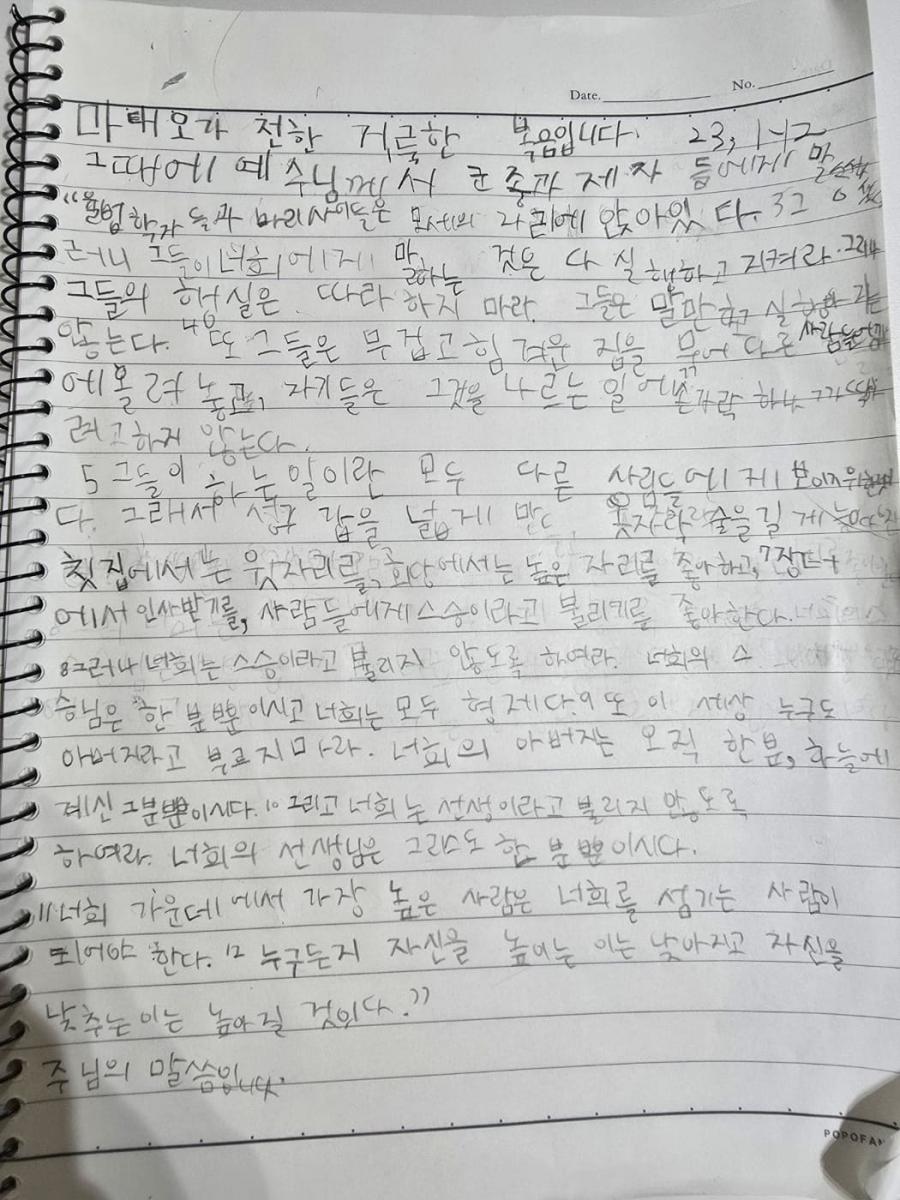 Date. No.
마태오가 전한 거룩한 복음입니다. 23,1-12
그때에 예수님께서 군중과 제자들에게 말씀하셨
"율법 학자들과 바리사이들은 모세의 자리에 앉아있다. 3그
러니 그들이 너희에게 말하는 것은 다 실행하고 지켜라. 그러나
그들의 행실은 따라 하지 마라. 그들은 말만 하고 실행하지는
않는다. 4 또 그들은 무겁고 힘겨운 짐을 묶어 다른 사람들 어깨
에 올려 놓고, 자기들은 그것을 나르는 일에 손가락 하나
려고 하지 않는다.
5 그들이 하는 일이란 모두 다른 사람들에게 보이기 위한
다. 그래서 성구 갑을 넓게 만 옷자락 술을 길게
칫집에서는 윗자리를, 회당에서는 높은 자리를 좋아하고, 7 장터
에서 인사받기를, 사람들에게 스승이라고 불리기를 좋아한다.
8그러나 너희는 스승이라고 불리지 않도록 하여라. 너희의 스
승님은 한 분뿐이시고 너희는 모두 형제다. 9 또 이 세상 누구도
아버지라고 부르지 마라. 너희의 아버지는 오직 한 분, 하늘에
계신 그분뿐이시다. 10 그리고 너희는 선생이라고 불리지 않도록
하여라. 너희의 선생님은 그리스도 한 분뿐이시다.
11 너희 가운데에서 가장 높은 사람은 너희를 섬기는 사람이
되어야 한다. 12 누구든지 자신을 높이는 이는 낮아지고 자신을
낮추는 이는 높아질 것이다."
주님의 말씀입니다.
POPOFAN